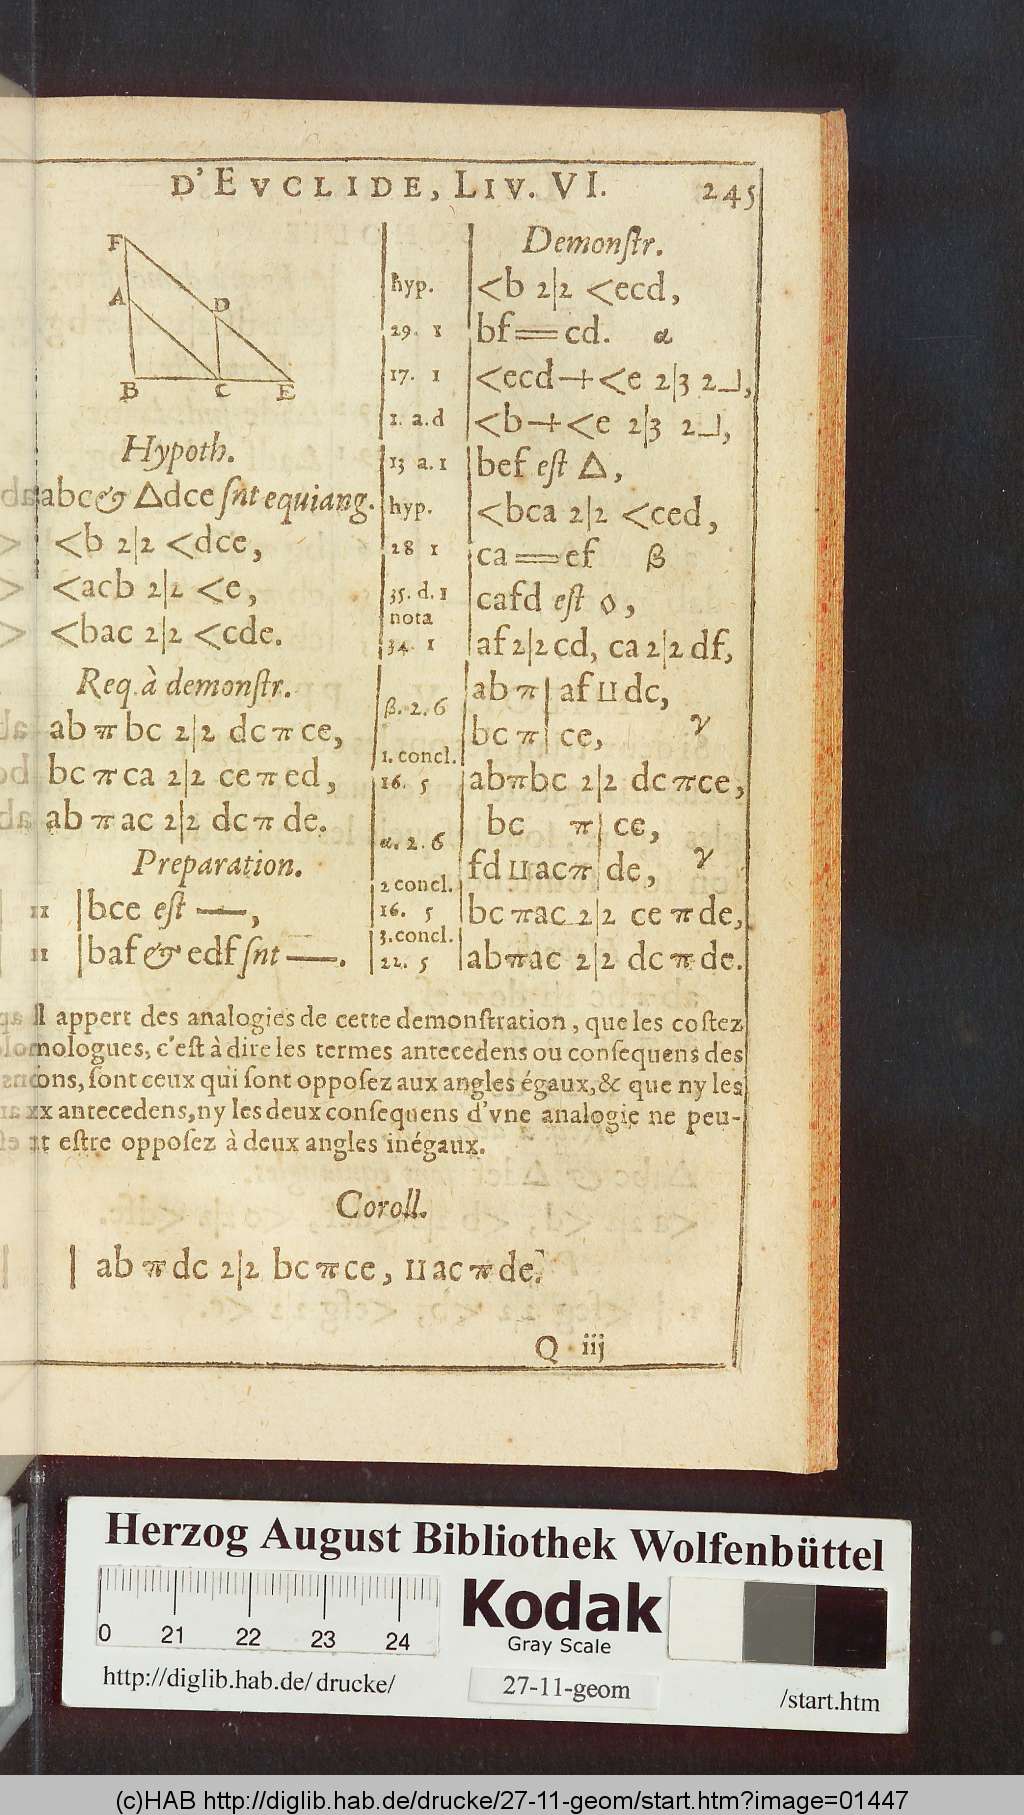 D'EVCLIDE, LIV. VI. 245
F
A
D
B C E
Hypoth.
abc & △dce snt equiang.
<b 2|2 <dce,
<acb 2|2 <e,
<bac 2|2 <cde.
Req. à demonſtr.
ab π bc 2|2 dc π ce,
bc π ca 2|2 ce π ed,
ab π ac 2|2 dc π de.
Preparation.
11 | bce eſt —,
11 | baf & edf ſnt —.
Demonſtr.
hyp. | <b 2|2 <ecd,
29. 1 | bf = cd. α
17. 1 | <ecd + <e 2|3 2⅃,
1. a. d | <b + <e 2|3 2⅃,
13 a. 1 | bef eſt △,
hyp. | <bca 2|2 <ced,
28 1 | ca = ef β
35. d. 1 | cafd eſt ◊,
nota
34. 1 | af 2|2 cd, ca 2|2 df,
ab π | af II dc,
β. 2. 6
bc π | ce, γ
1. concl.
16. 5 | ab π bc 2|2 dc π ce,
bc π | ce,
α. 2. 6
fd II ac π | de, γ
2 concl.
16. 5 | bc π ac 2|2 ce π de,
3. concl.
22. 5 | ab π ac 2|2 dc π de.
Il appert des analogies de cette demonſtration, que les coſtez
mologues, c'eſt à dire les termes antecedens ou conſequens des
ons, ſont ceux qui ſont oppoſez aux angles égaux, & que ny les
x antecedens, ny les deux conſequens d'vne analogie ne peu-
t eſtre oppoſez à deux angles inégaux.
Coroll.
| ab π dc 2|2 bc π ce, II ac π de.
Q iij
Herzog August Bibliothek Wolfenbüttel
0 21 22 23 24
Kodak
Gray Scale
http://diglib.hab.de/drucke/
27-11-geom
/start.htm
(c)HAB http://diglib.hab.de/drucke/27-11-geom/start.htm?image=01447